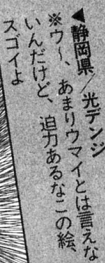 ◀静岡県／光デンジ
※ウ〜、あまりウマイとは言えな
いんだけど、迫力あるなこの絵、
スゴイよ